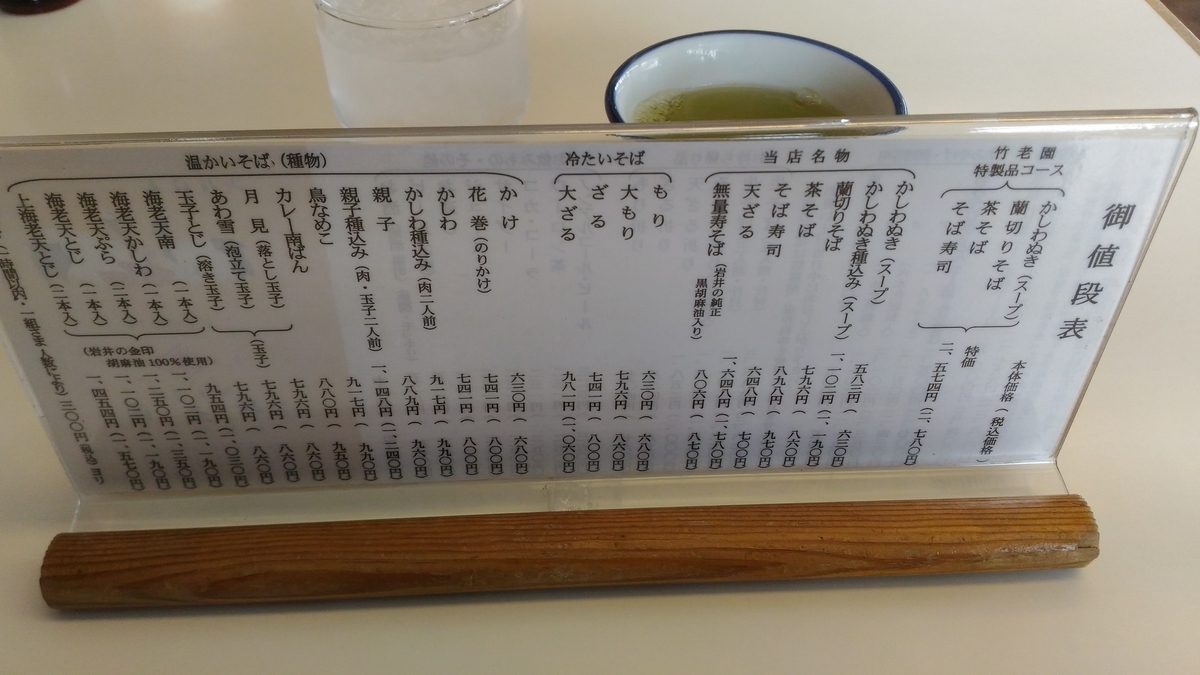 御値段表
本体価格(税込価格)
竹老園
特製品コース
かしわぬき(スープ)
蘭切りそば
茶そば
そば寿司
特価
二、五七四円(二、七八〇円)
当店名物
かしわぬき(スープ) 五八三円(六三〇円)
かしわぬき種込み(スープ) 一、一〇二円(一、一九〇円)
蘭切りそば 七九六円(八六〇円)
茶そば 八九八円(九七〇円)
そば寿司 六四八円(七〇〇円)
天ざる 一、六四八円(一、七八〇円)
無量寿そば(岩井の純正
黒胡麻油入り) 八〇六円(八七〇円)
冷たいそば
もり 六三〇円(六八〇円)
大もり 七九六円(八六〇円)
ざる 七四一円(八〇〇円)
大ざる 九八一円(一、〇六〇円)
温かいそば(種物)
かけ 六三〇円(六八〇円)
花巻(のりかけ) 七四一円(八〇〇円)
かしわ 七四一円(八〇〇円)
かしわ種込み(肉二人前) 九一七円(九九〇円)
親子 八八九円(九六〇円)
親子種込み(肉・玉子二人前) 一、一四八円(一、二四〇円)
鳥なめこ 九一七円(九九〇円)
カレー南ばん 八八〇円(九五〇円)
月見(落とし玉子) 七九六円(八六〇円)
あわ雪(泡立て玉子) 七九六円(八六〇円)
玉子とじ(溶き玉子) 七九六円(八六〇円)
(玉子)
海老天南(一本入) 九五四円(一、〇三〇円)
海老天かしわ(一本入) 一、一〇二円(一、一九〇円)
海老天ぷら(二本入) 一、二五〇円(一、三五〇円)
海老天とじ(一本入) 一、一〇二円(一、一九〇円)
上海老天とじ(二本入) 一、四五四円(一、五七〇円)
(岩井の金印
胡麻油100%使用)
時間以内・一組さま人数により)三〇〇円(税込)ヨリ